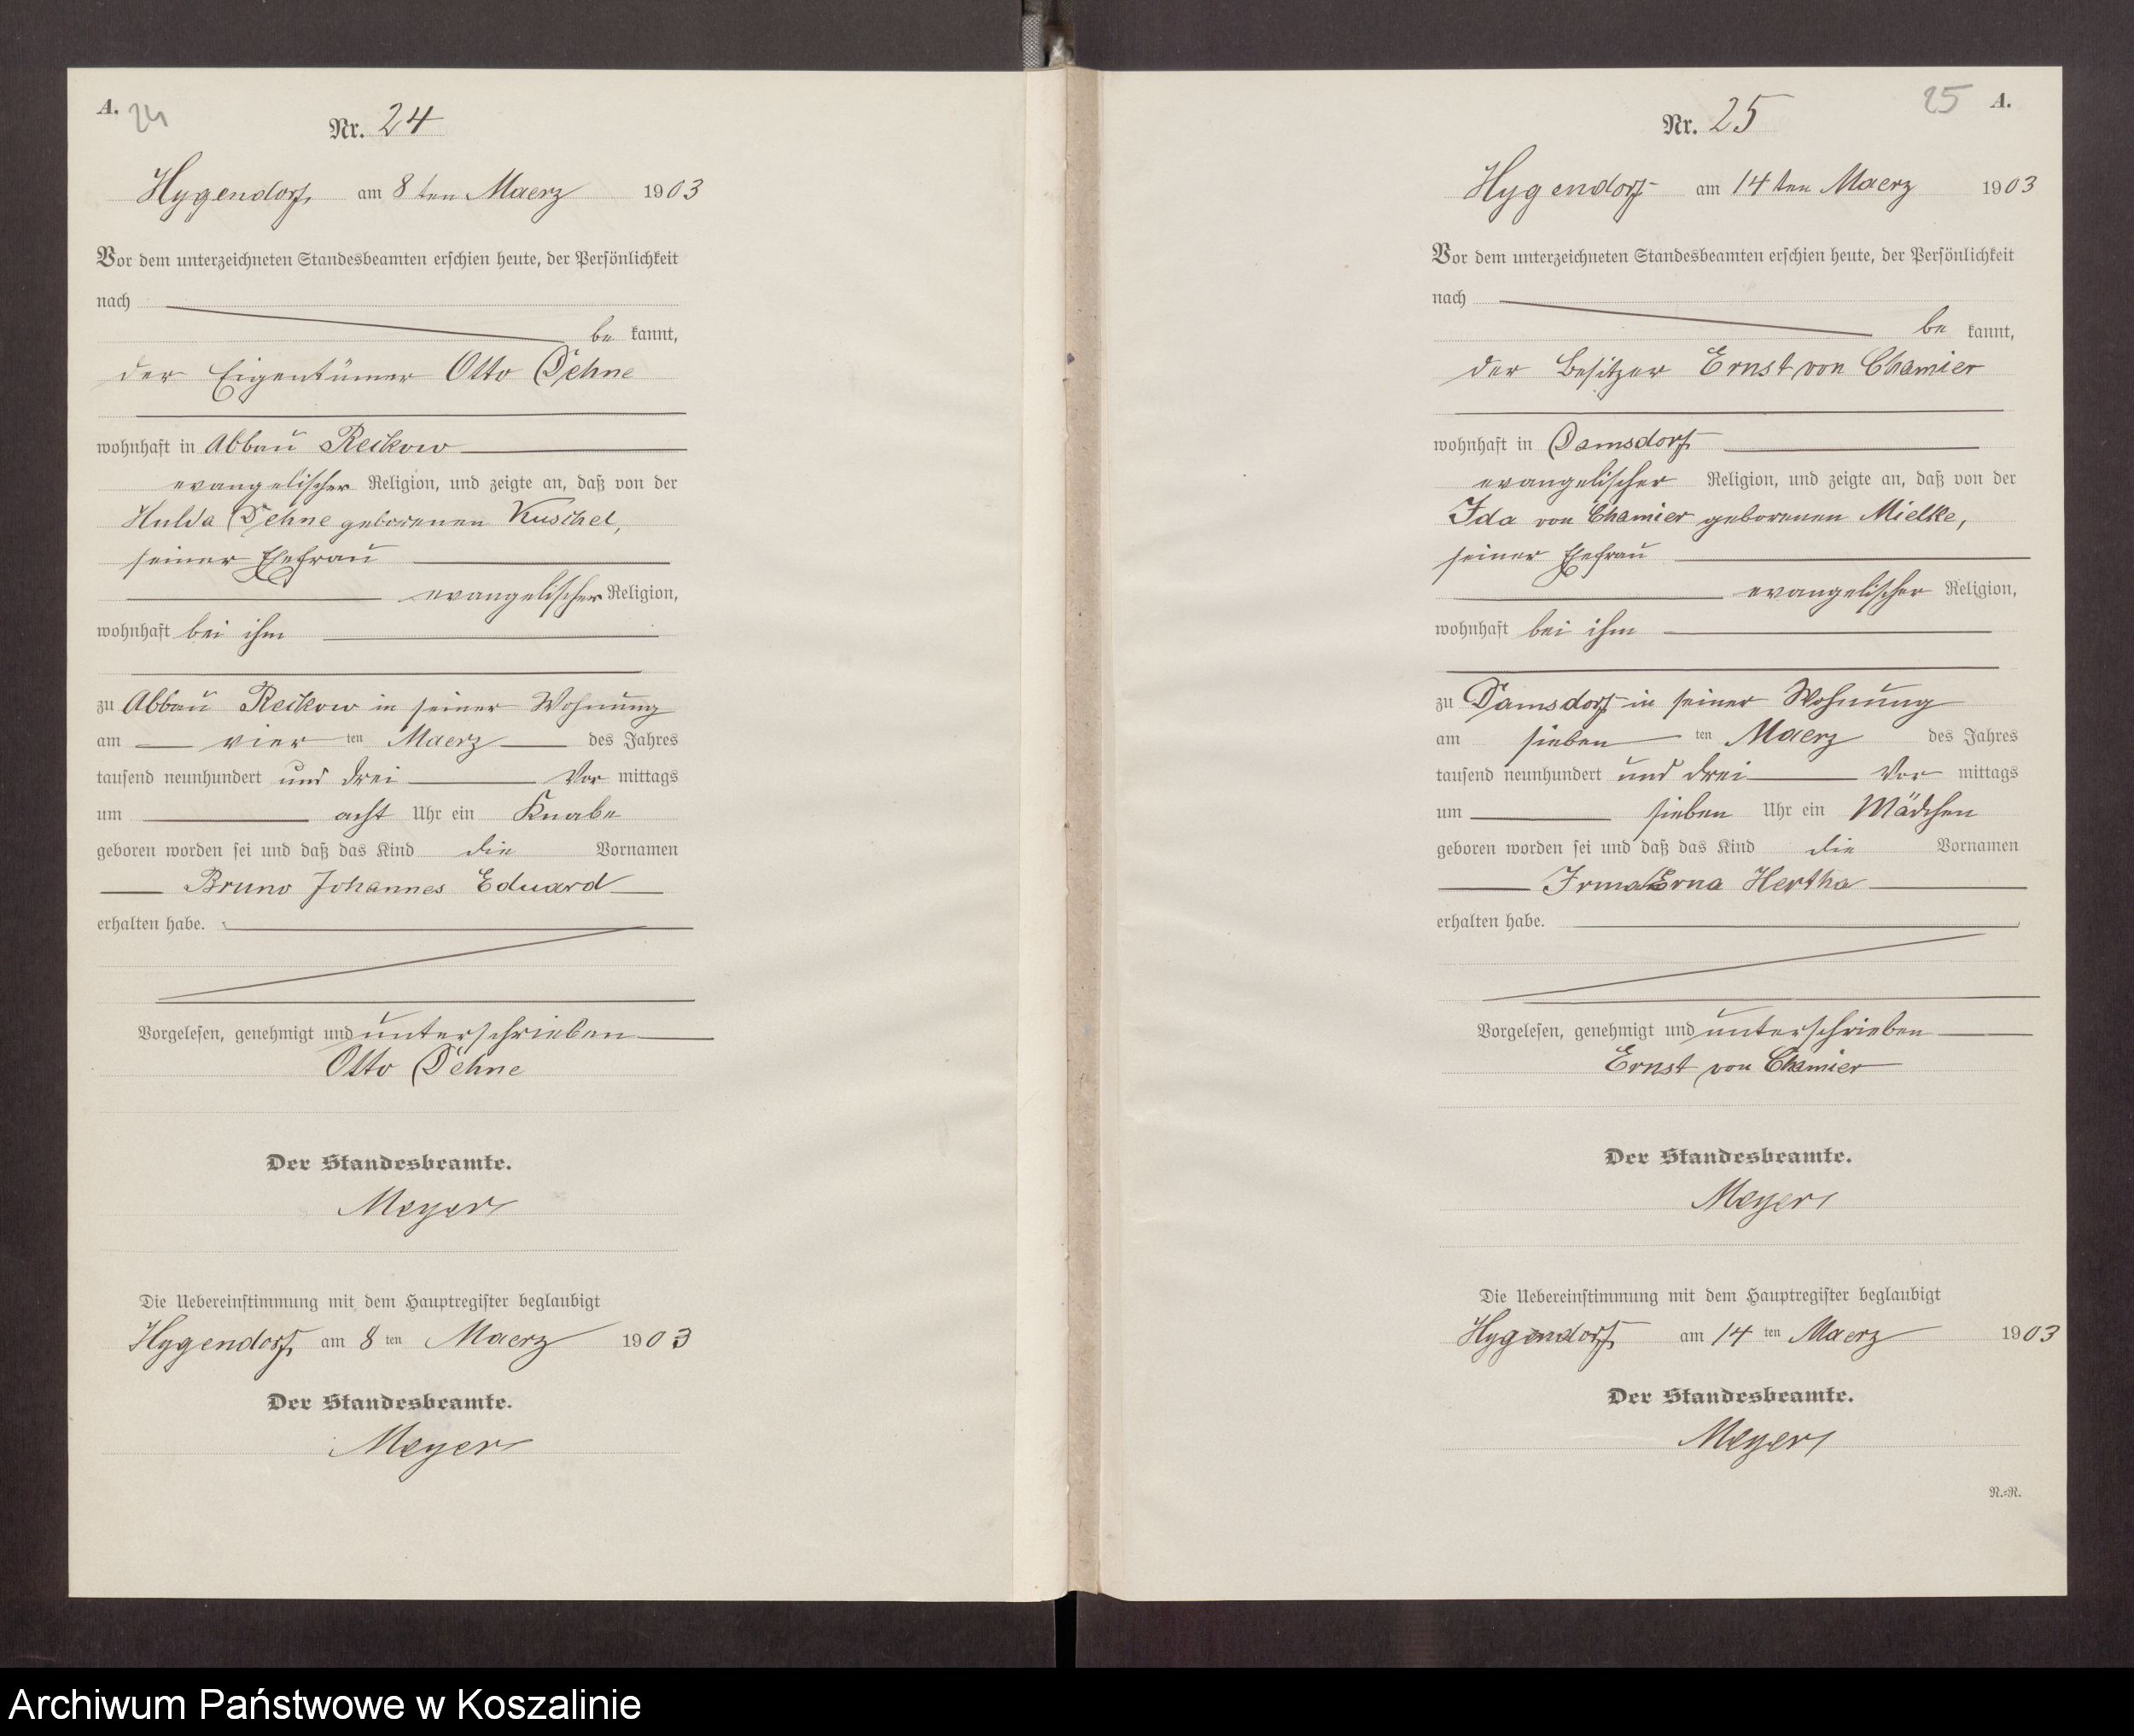 A. 24
Nr. 24
Hygendorf, am 8 ten Maerz 1903
Vor dem unterzeichneten Standesbeamten erschien heute, der Persönlichkeit
nach
be kannt,
der Eigentümer Otto Dehne
wohnhaft in Abbau Reckow
evangelischer Religion, und zeigte an, daß von der
Hulda Dehne geborenen Kuschel,
seiner Ehefrau
evangelischer Religion,
wohnhaft bei ihm
zu Abbau Reckow in seiner Wohnung
am vier ten Maerz des Jahres
tausend neunhundert und drei Vor mittags
um acht Uhr ein Knabe
geboren worden sei und daß das Kind die Vornamen
Bruno Johannes Eduard
erhalten habe.
Vorgelesen, genehmigt und unterschrieben
Otto Dehne
Der Standesbeamte.
Meyer
Die Uebereinstimmung mit dem Hauptregister beglaubigt
Hygendorf, am 8 ten Maerz 1903
Der Standesbeamte.
Meyer
25 A.
Nr. 25
Hygendorf am 14 ten Maerz 1903
Vor dem unterzeichneten Standesbeamten erschien heute, der Persönlichkeit
nach
be kannt,
der Besitzer Ernst von Chamier
wohnhaft in Damsdorf
evangelischer Religion, und zeigte an, daß von der
Ida von Chamier geborenen Mielke,
seiner Ehefrau
evangelischer Religion,
wohnhaft bei ihm
zu Damsdorf in seiner Wohnung
am sieben ten Maerz des Jahres
tausend neunhundert und drei Vor mittags
um sieben Uhr ein Mädchen
geboren worden sei und daß das Kind die Vornamen
Irma Erna Hertha
erhalten habe.
Vorgelesen, genehmigt und unterschrieben
Ernst von Chamier
Der Standesbeamte.
Meyer
Die Uebereinstimmung mit dem Hauptregister beglaubigt
Hygendorf am 14 ten Maerz 1903
Der Standesbeamte.
Meyer
N.=R.
Archiwum Państwowe w Koszalinie